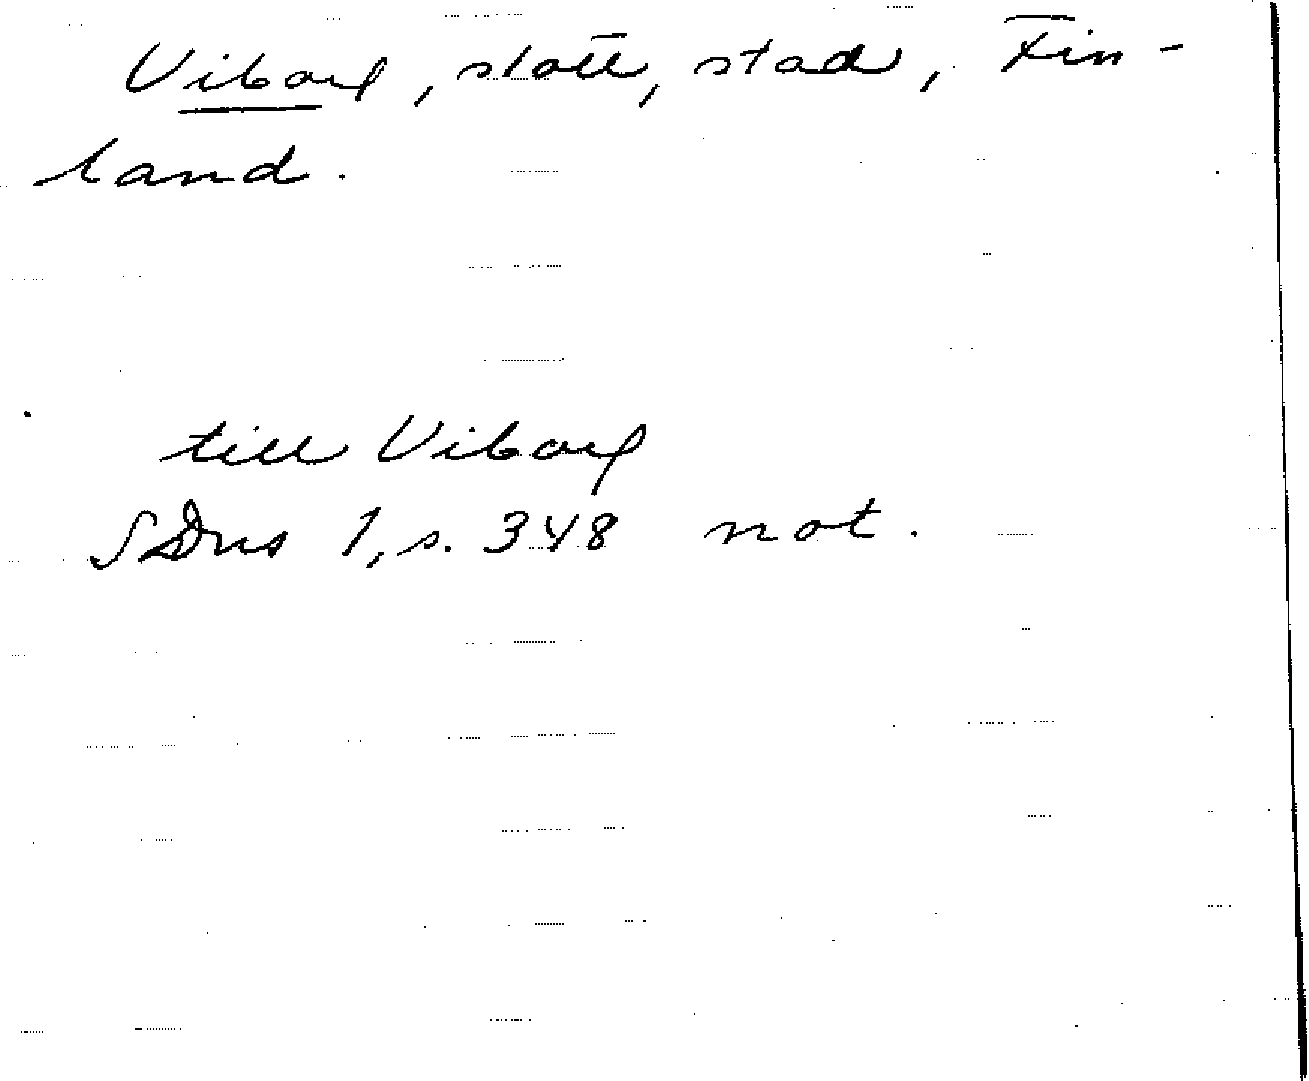 Viborg, slott, stad, Fin-
land.
till Viborg
SDns 1, s. 348 not.